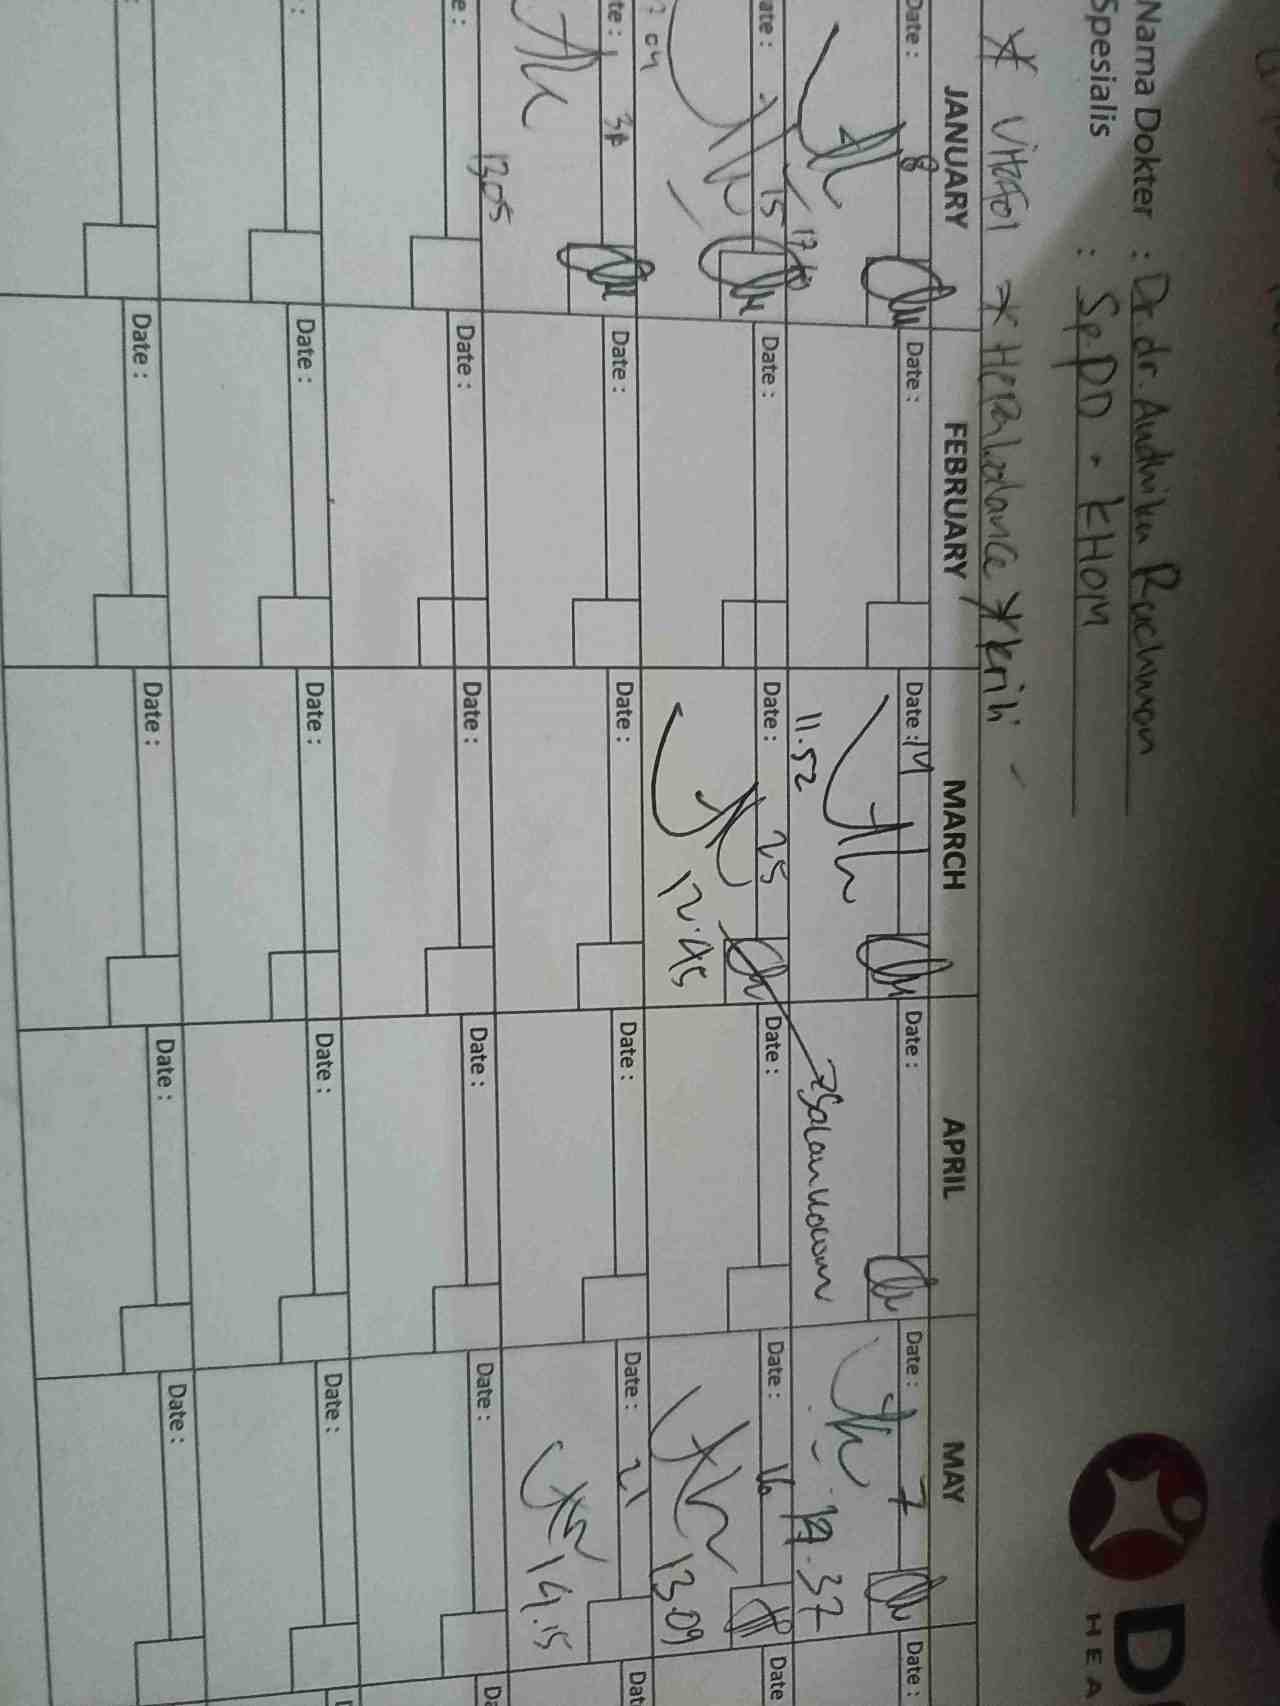 Nama Dokter : Dr. dr. Andhika Rachman
Spesialis : SpPD - KHOM
D
HEA
* Vitafol * Hepabalance *
JANUARY FEBRUARY MARCH APRIL MAY
Date : 8 Date : Date : 14 Date : Date : 7 Date :
17 11.52 .37
ate : 15 Date : Date : 25 Date : Date : 16 Date
12.45 13.09
te : Date : Date : Date : Date : 21 Dat
13.05 14.15
e : Date : Date : Date : Date : Da
: Date : Date : Date : Date : D
: Date : Date : Date : Date :